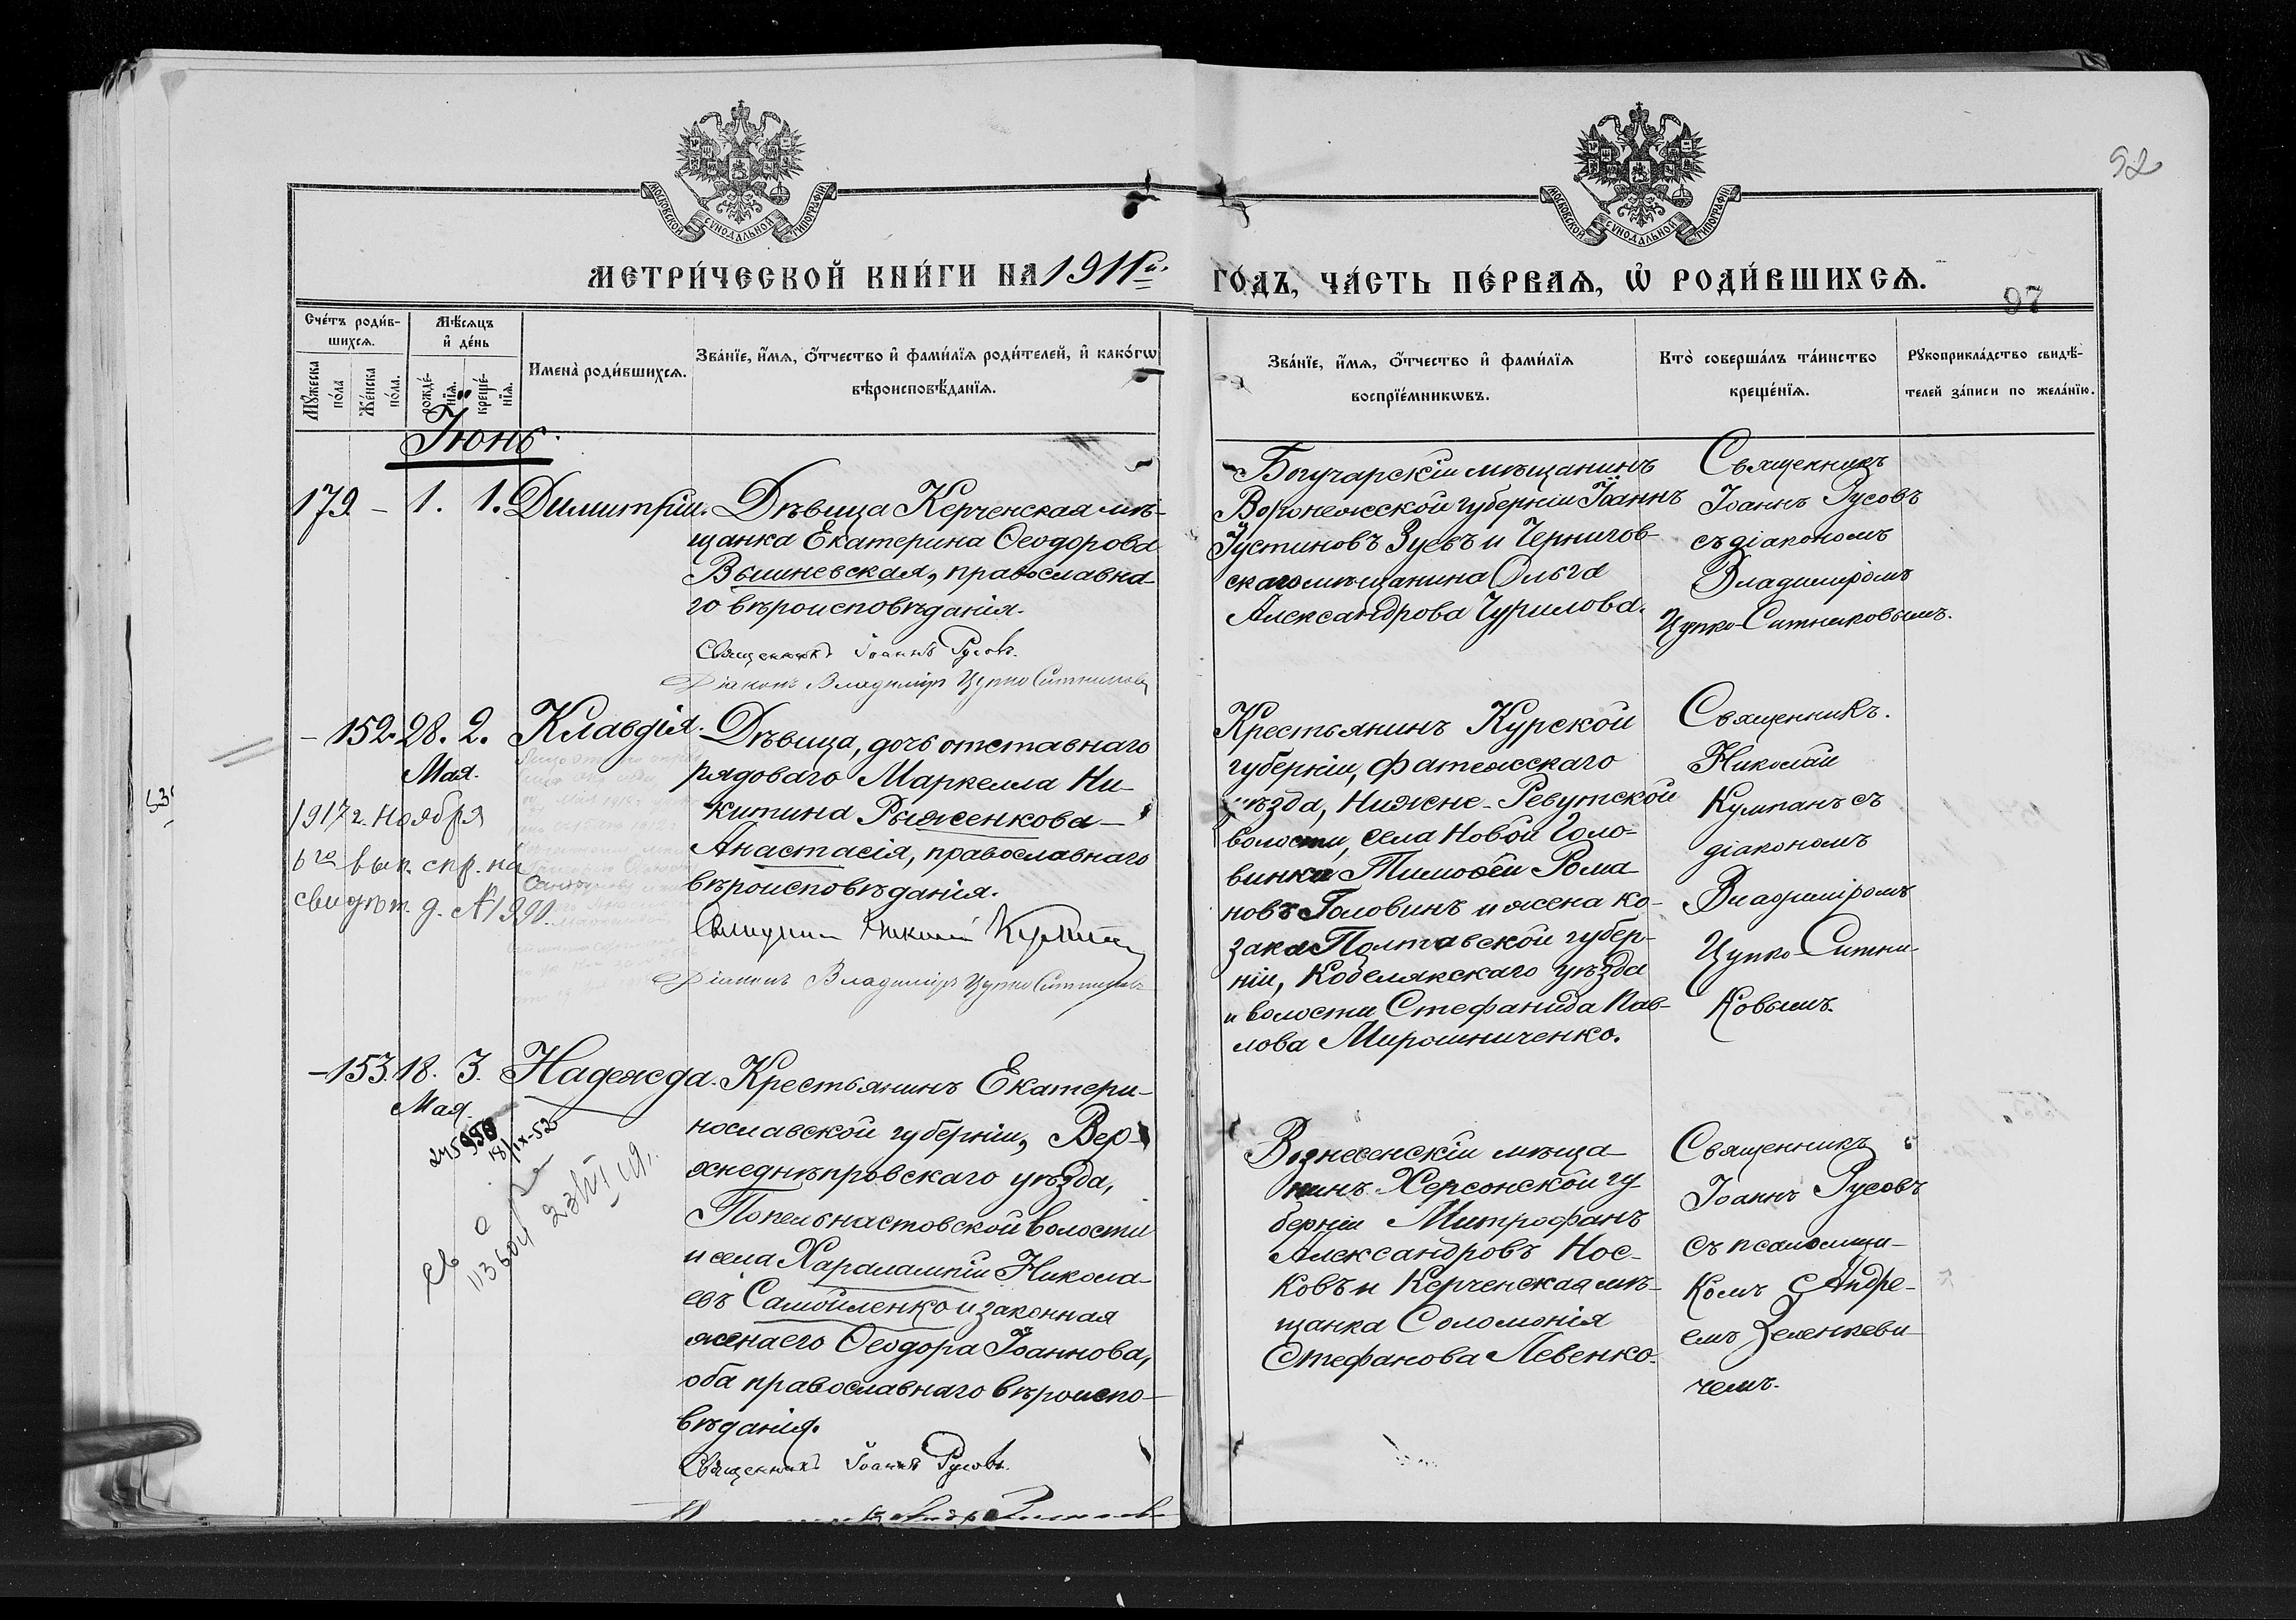 МОСКОВСКОЙ СѴНОДАЛЬНОЙ ТИПОГРАФІИ
МОСКОВСКОЙ СѴНОДАЛЬНОЙ ТИПОГРАФІИ
52
МЕТРИ́ЧЕСКОЙ КНИ́ГИ НА 1911й.
ГО́ДЪ, ЧА́СТЬ ПЕ́РВАѦ, Ѡ҆ РОДИ́ВШИХСѦ.
97
Сче́тъ роди́в-
шихсѧ.
Мꙋ́жеска
по́ла
Же́нска
по́ла.
Мѣ́сѧцъ
и҆ де́нь
рожде́-
нїѧ.
креще́-
нїѧ.
И҆мена̀ роди́вшихсѧ.
Зва́нїе, и҆́мѧ, ѻ҆́тчество и҆ фами́лїѧ роди́телей, и҆ како́гѡ
вѣроисповѣ́данїѧ.
Зва́нїе, и҆́мѧ, ѻ҆́тчество и҆ фами́лїѧ
воспрїе́мникѡвъ.
Кто̀ соверша́лъ та́инство
креще́нїѧ.
Рꙋкоприкла́дство свидѣ́-
телей за́писи по жела́нїю.
Іюнь.
179. – 1. 1. Димитрій.
Дѣвица Керченская мѣ-
щанка Екатерина Ѳеодорова
Вышневская, православна-
го вѣроисповѣданія.
Священникъ Іоаннъ Русовъ.
Діаконъ Владиміръ Цупко Ситниковъ
Богучарскій мѣщанинъ
Воронежской губерніи Іоаннъ
Іустиновъ Зуевъ и Чернигов-
скаго мѣщанина Ольга
Александрова Чурилова.
Священникъ
Іоаннъ Русовъ
съ діакономъ
Владиміромъ
Цупко-Ситниковымъ.
– 152. 28. 2. Клавдія.
Мая.
1917 г. Ноября
6го вып. спр. на
свидѣт. д. №1990.
Дѣвица, дочь отставнаго
рядоваго Маркелла Ни-
китина Рыженкова –
Анастасія, православнаго
вѣроисповѣданія.
Священникъ Николай Кумпанъ
Діаконъ Владиміръ Цупко Ситниковъ
Крестьянинъ Курской
губерніи, Фатежскаго
уѣзда, Нижне-Ревутской
волости, села Новой Голо-
винки Тимоѳей Рома-
новъ Головинъ и жена ко-
зака Полтавской губер-
ніи, Кобелякскаго уѣзда
и волости Стефанида Пав-
лова Мирошниченко.
Священникъ.
Николай
Кумпанъ съ
діакономъ
Владиміромъ
Цупко-Ситни-
ковымъ.
– 153. 18. 3. Надежда.
Мая.
245950
18/IX-52
113604
Крестьянинъ Екатери-
нославской губерніи, Вер-
хнеднѣпровскаго уѣзда,
Попельнастовской волости
и села Харалампій Никола-
евъ Самойленко и законная
жена его Ѳеодора Іоаннова,
оба православнаго вѣроиспо-
вѣданія.
Священникъ Іоаннъ Русовъ.
Вознесенскій мѣща-
нинъ Херсонской гу-
берніи Митрофанъ
Александровъ Нос-
ковъ и Керченская мѣ-
щанка Соломонія
Стефанова Левенко.
Священникъ
Іоаннъ Русовъ
съ псаломщи-
комъ Андре-
емъ Зеленкеви-
чемъ.